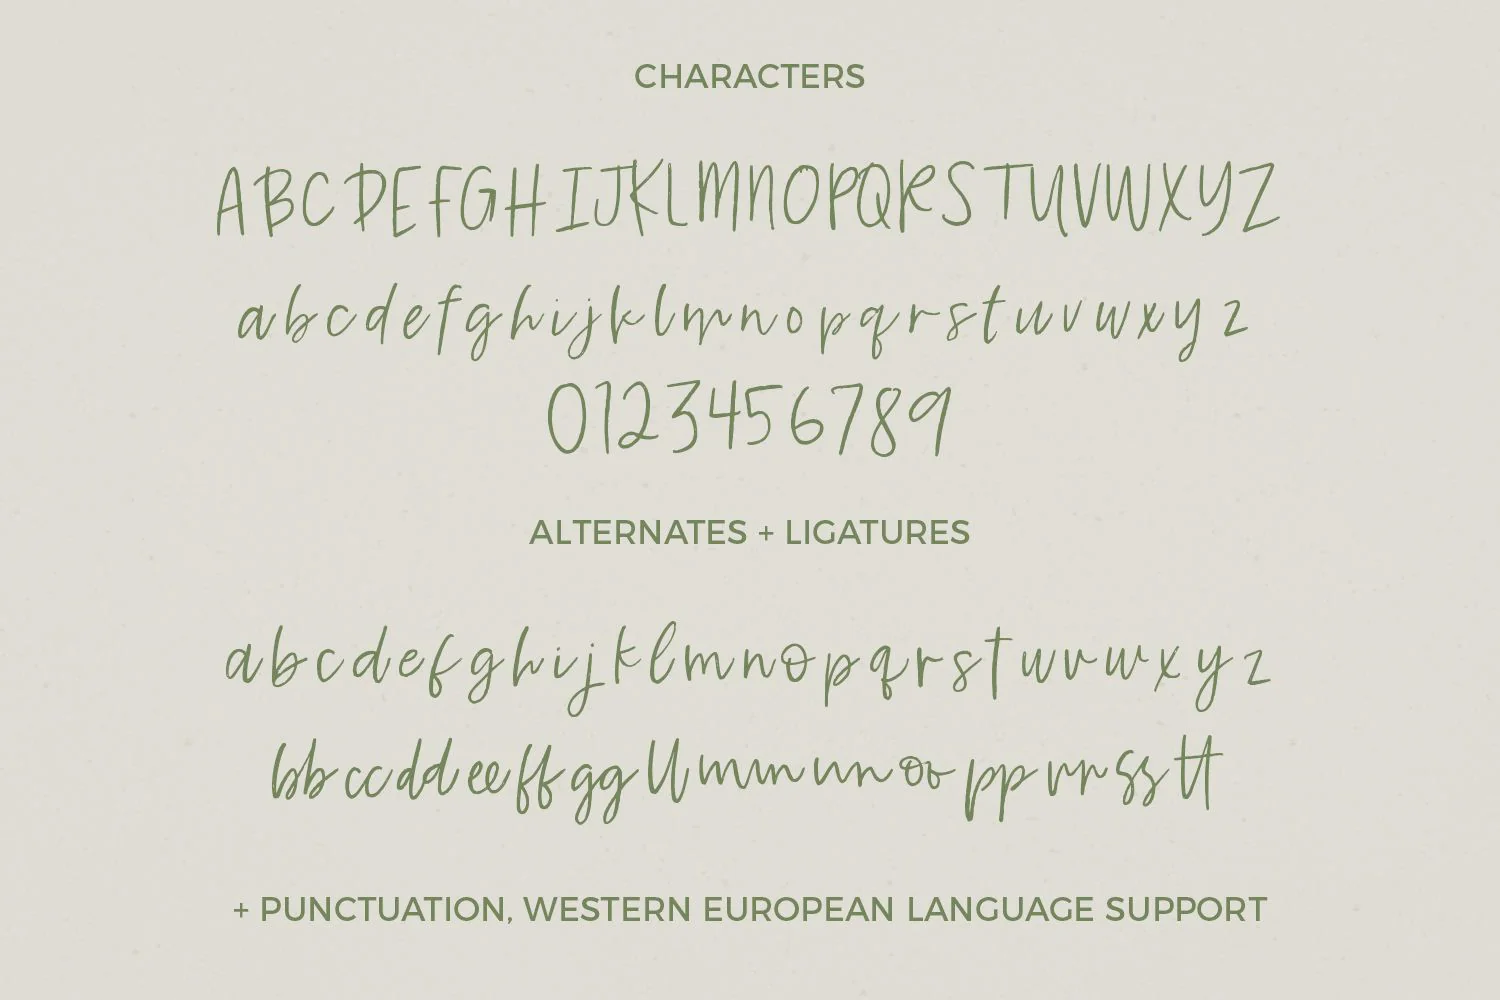 CHARACTERS
ABCDEFGHIJKLMNOPQRSTUVWXYZ
abcdefghijklmnopqrstuvwxyz
0123456789
ALTERNATES + LIGATURES
abcdefghijklmnopqrstuvwxyz
bbccddeeffggllmmnnoopprrsstt
+ PUNCTUATION, WESTERN EUROPEAN LANGUAGE SUPPORT